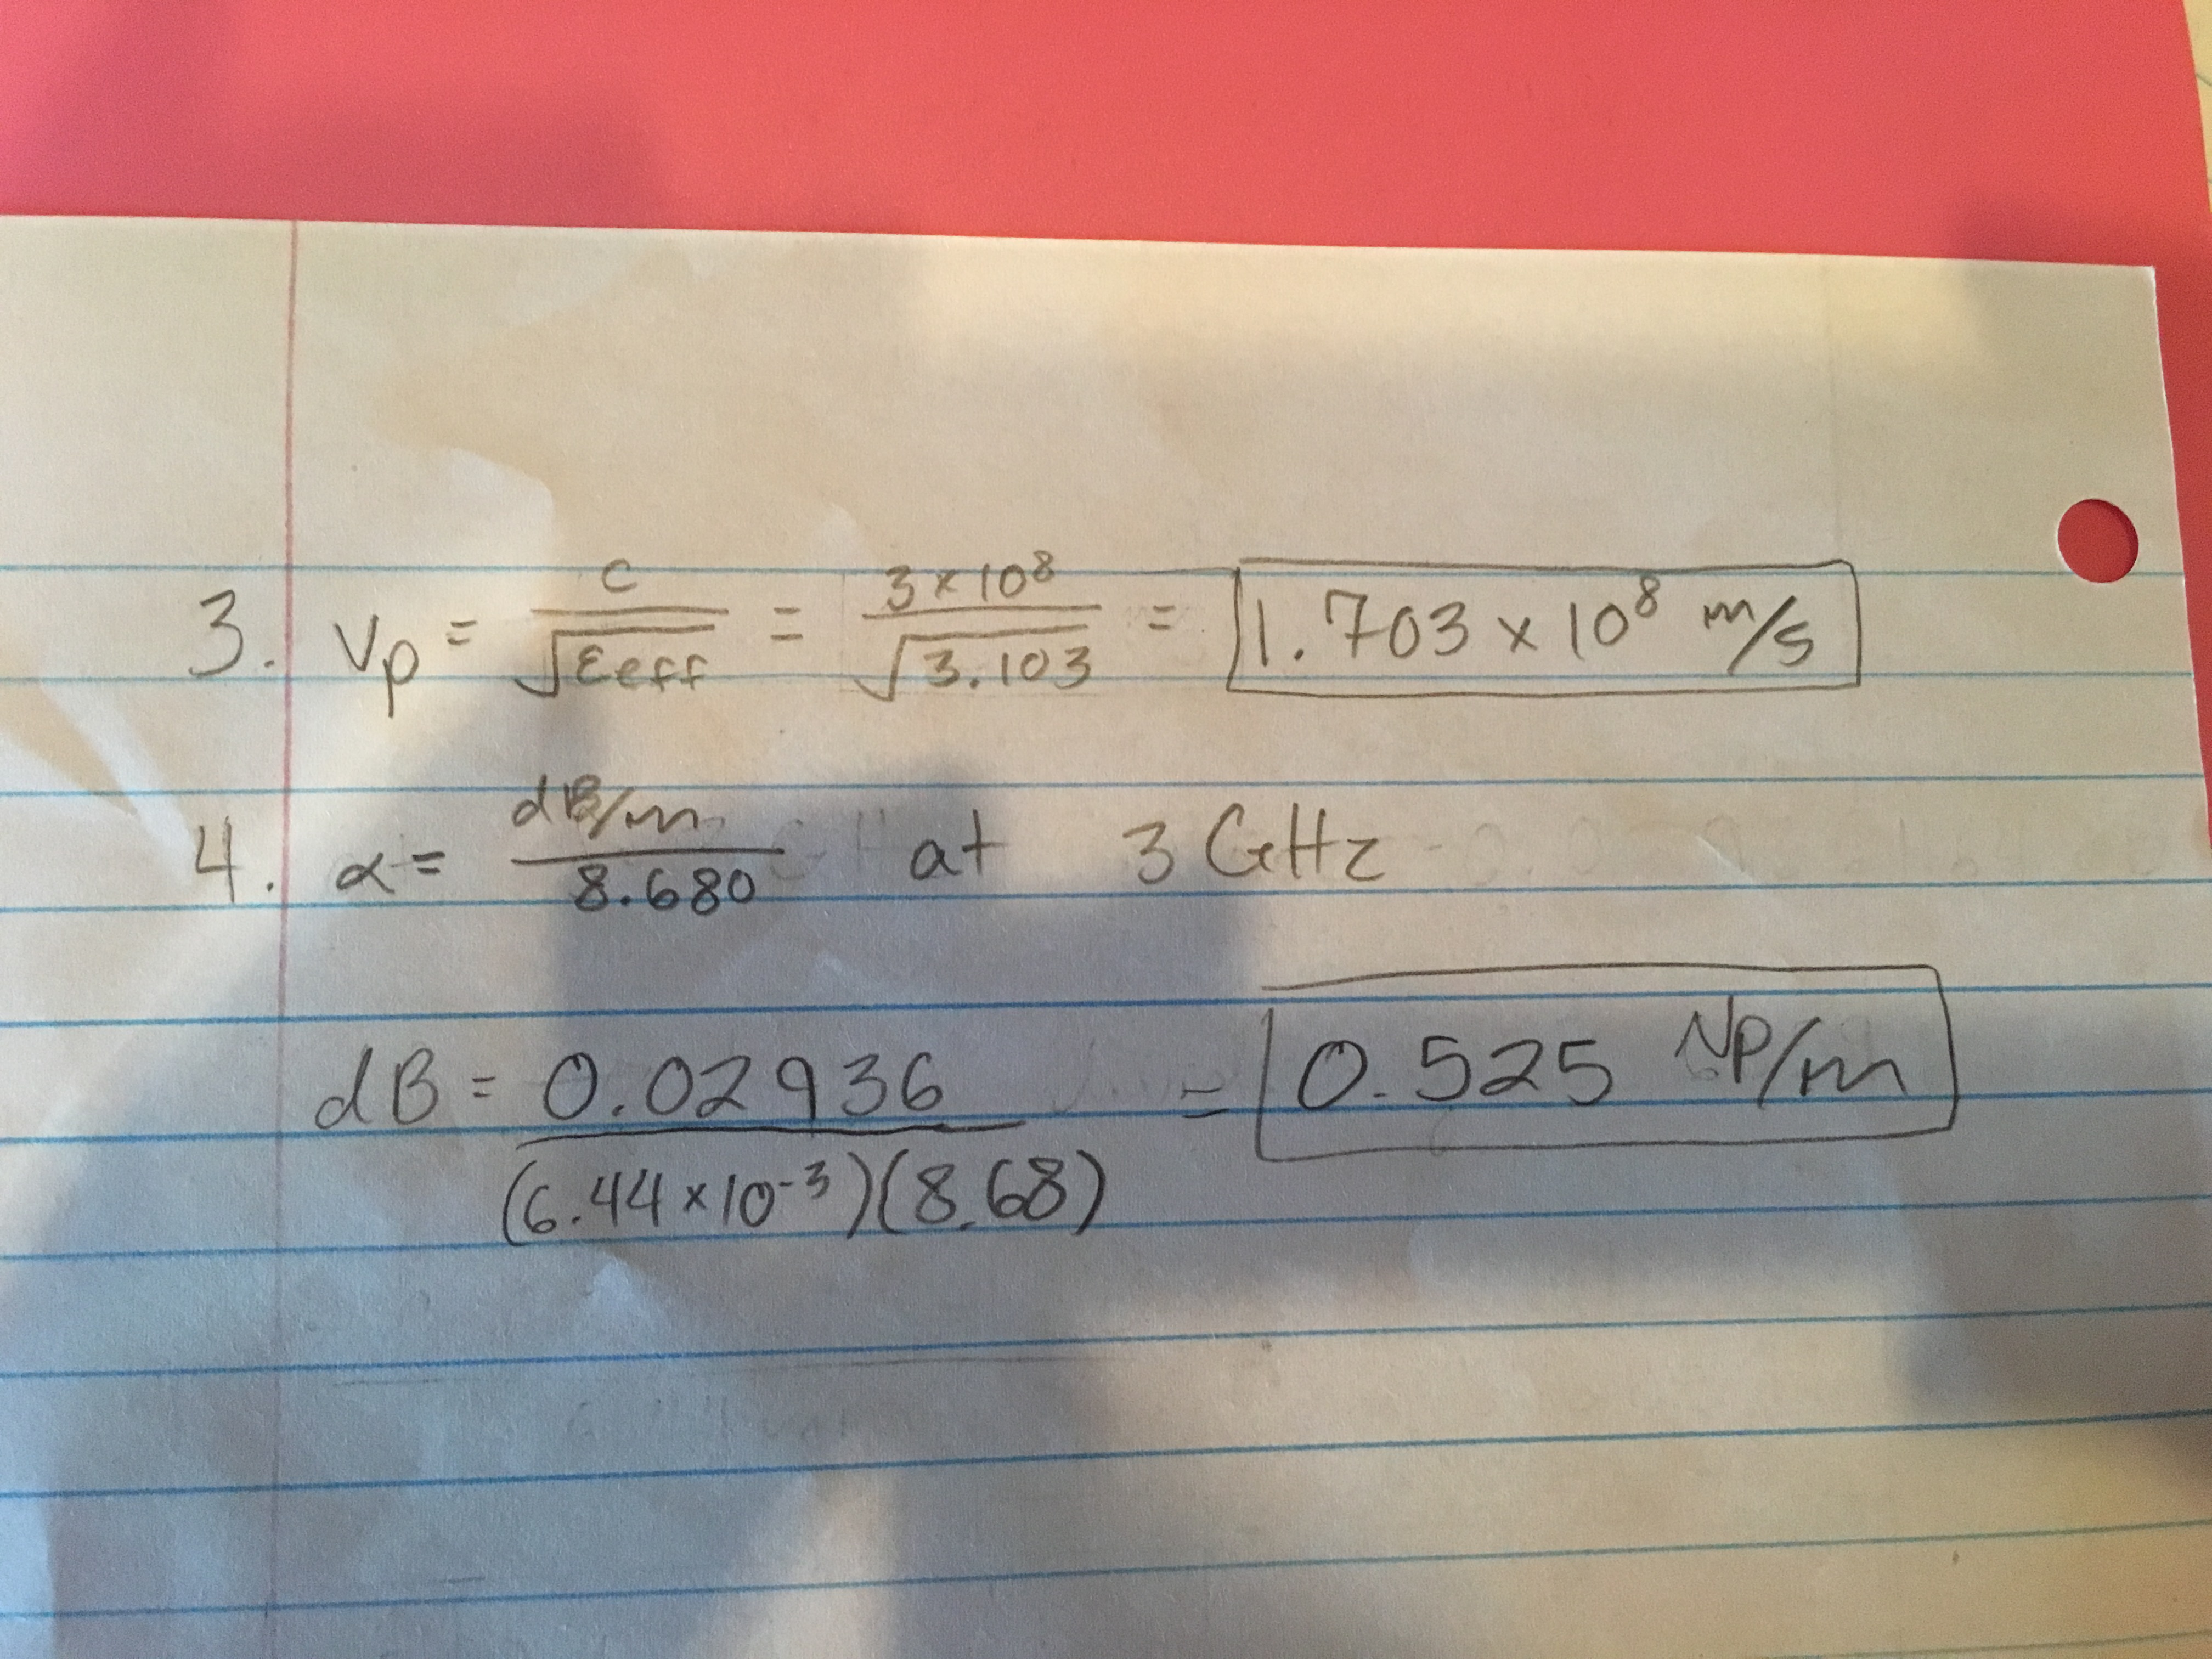 3. Vp = c / √εeff = 3×10⁸ / √3.103 = 1.703 × 10⁸ m/s
4. α = dB/m / 8.680 at 3 GHz
dB = 0.02936 / (6.44×10⁻³)(8.68) = 0.525 Np/m